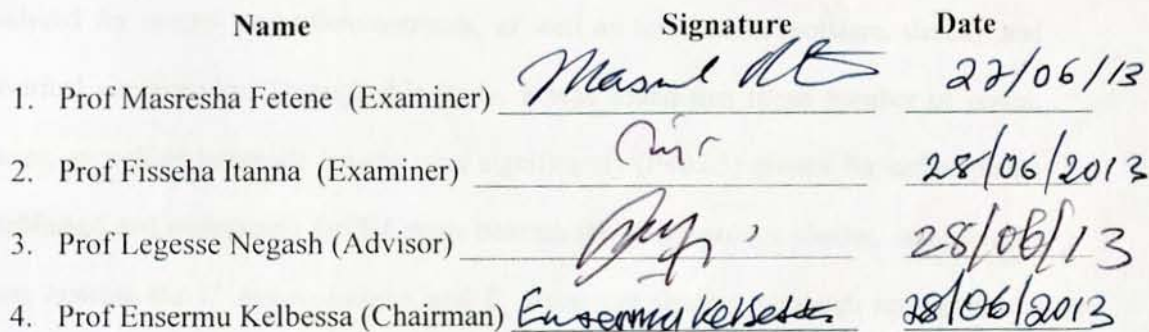 Name Signature Date
1. Prof Masresha Fetene (Examiner) 27/06/13
2. Prof Fisseha Itanna (Examiner) 28/06/2013
3. Prof Legesse Negash (Advisor) 28/06/13
4. Prof Ensermu Kelbessa (Chairman) Ensermu Kelbessa 28/06/2013